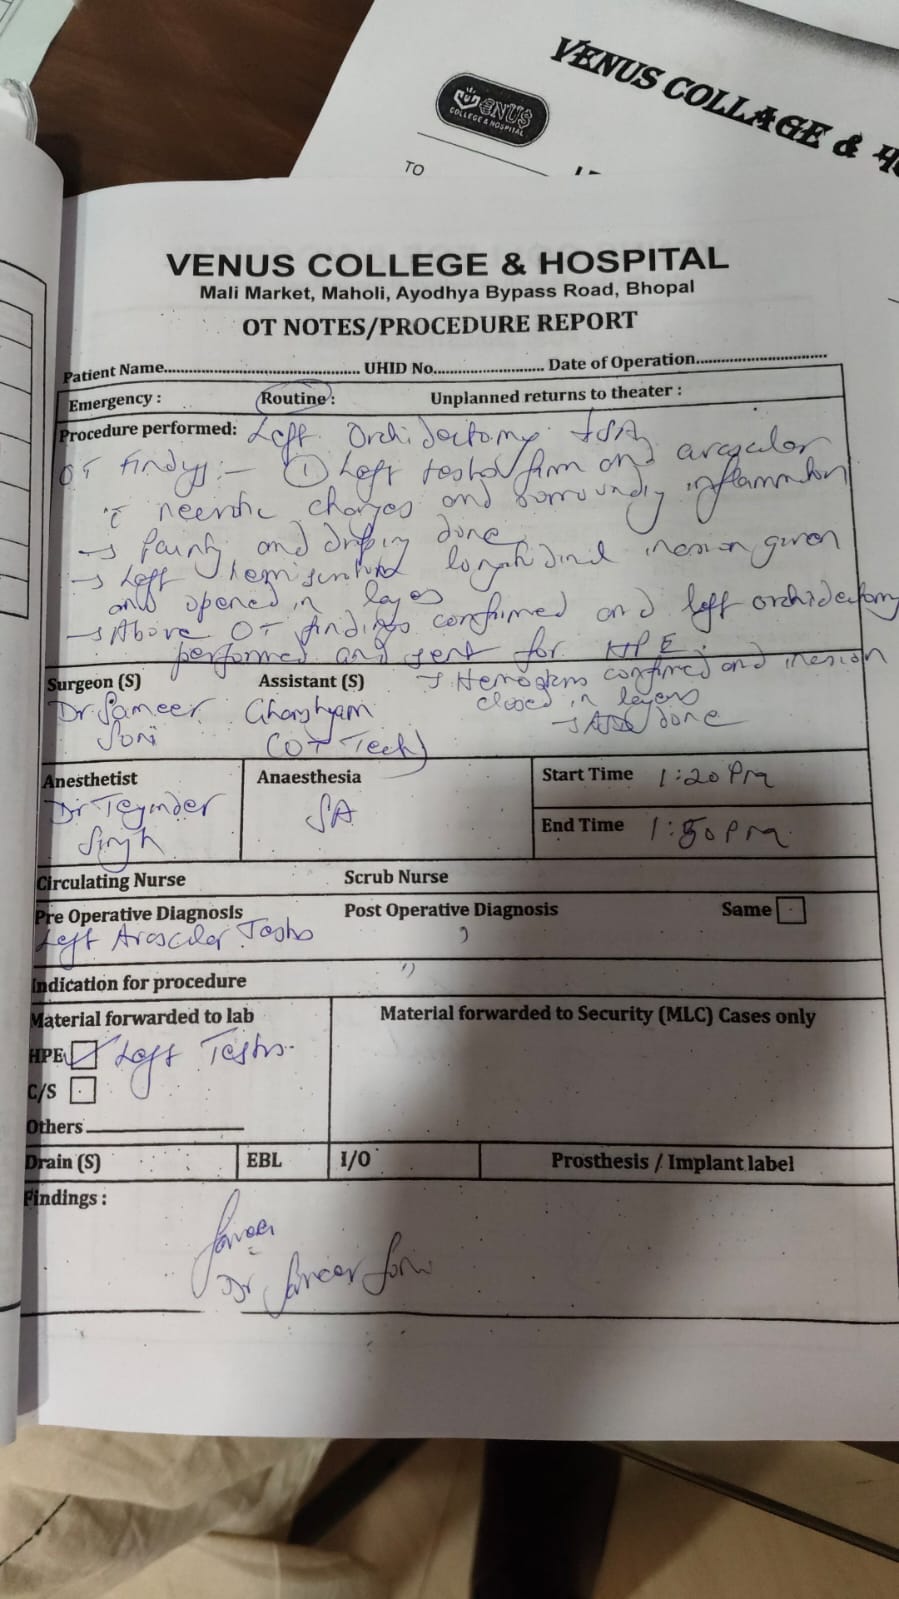 VENUS COLLAGE & H
VENUS
COLLEGE & HOSPITAL
TO
VENUS COLLEGE & HOSPITAL
Mali Market, Maholi, Ayodhya Bypass Road, Bhopal
OT NOTES/PROCEDURE REPORT
Patient Name.................... UHID No.................... Date of Operation....................
Emergency : Routine : Unplanned returns to theater :
Procedure performed: Left Orchidectomy
OT findgs :- ① Left firm and avascular
changes and inflammation
→ and done
→ Left incision given
and opened in layers
→ Above OT findings confirmed and left orchidectomy
performed and sent for HPE.
Surgeon (S) Assistant (S) → confirmed and incision
Dr. Sameer Ghanshyam closed in layers
Soni (OT Tech) → done
Anesthetist Anaesthesia Start Time 1:20 Pm
Dr Tejinder SA
Singh End Time 1:50 Pm
Circulating Nurse Scrub Nurse
Pre Operative Diagnosis Post Operative Diagnosis Same
Left
Indication for procedure
Material forwarded to lab Material forwarded to Security (MLC) Cases only
HPE Left Testis.
C/S
Others
Drain (S) EBL I/O Prosthesis / Implant label
Findings :
Sameer
Dr Sameer Soni